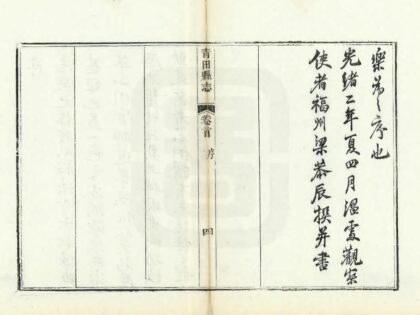 樂爲之序也
光緒二年夏四月溫處觀察
使者福州梁恭辰撰并書
青田縣志
卷首
序
四